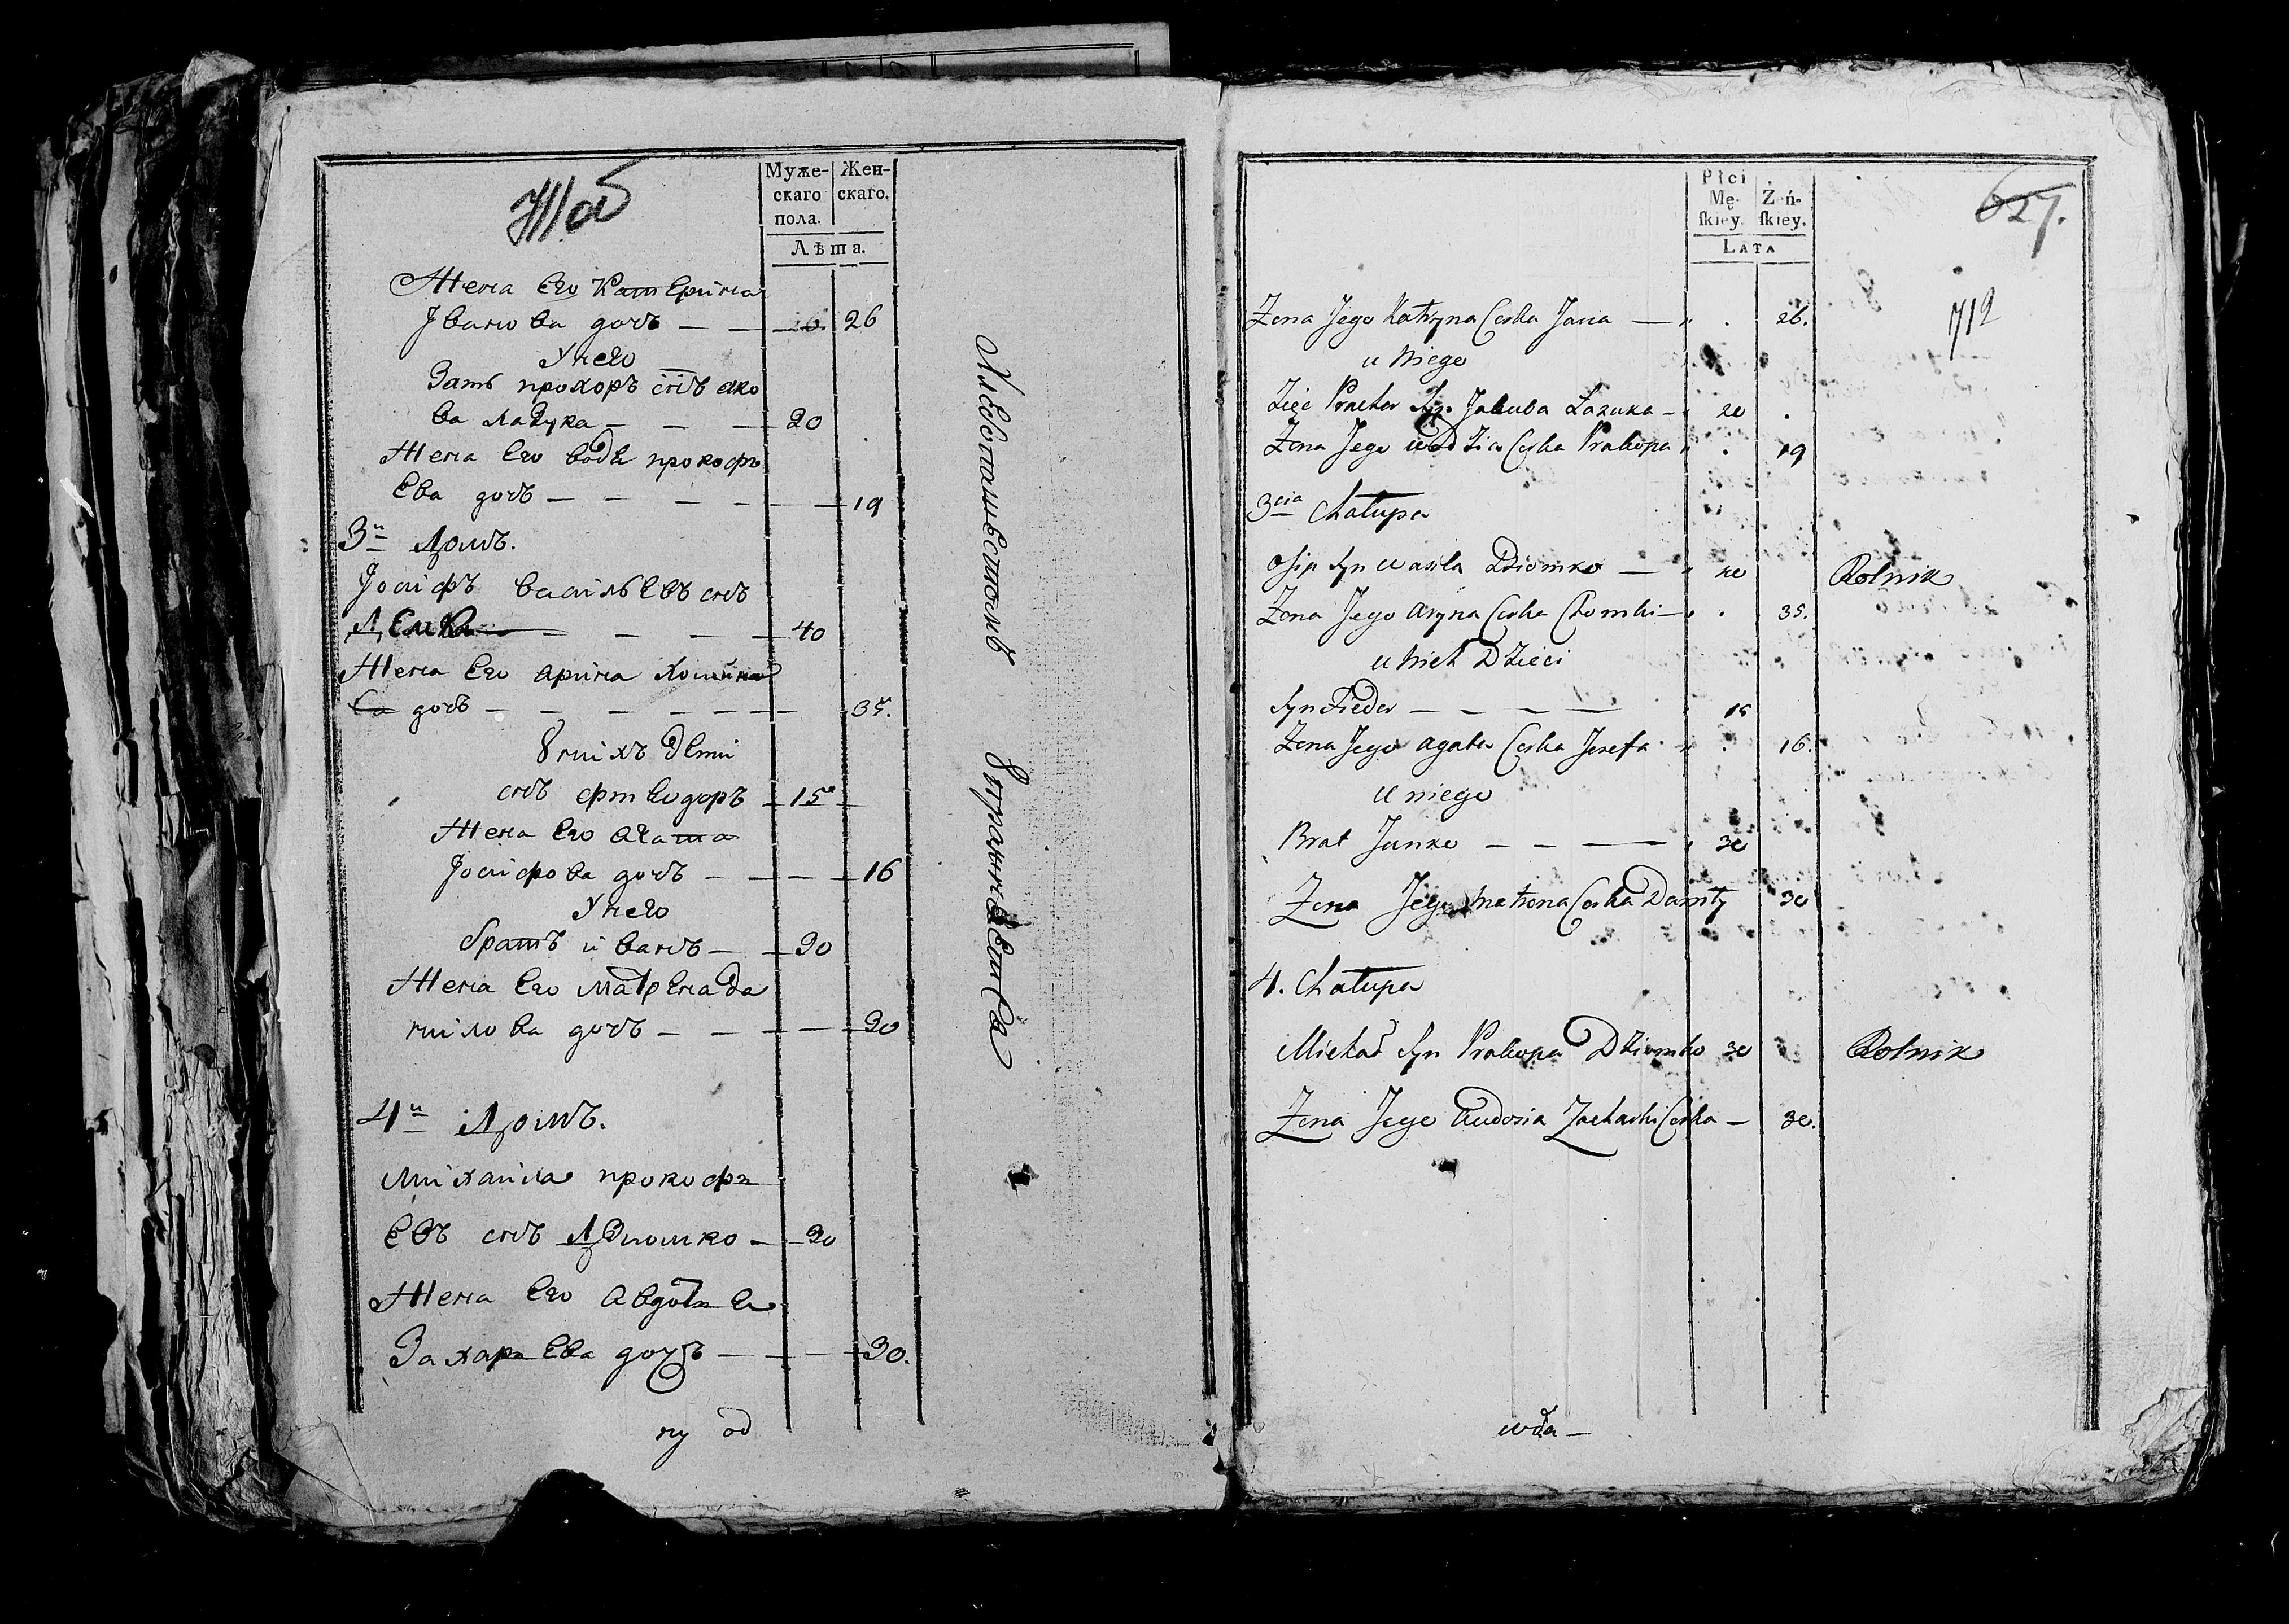 Муже-
скаго
пола.
Жен-
скаго.
Лѣта.
Жена Его Катерина
Іванова дочь — — 26
Унего
Зать прохоръ снъ яко
ва лазука — — — 20
Жена Его Водя прокофь
Ева дочь — — — — — 19
3й Домъ.
Іосифъ васильЕвъ снъ
ДЕмка — — — 40
Жена Его арина хомина
дочь — — — — — — — 35.
Унихъ дети
снъ фтеодоръ — 15
Жена Его агата
Іосифова дочь — — — 16
Унего
братъ иванъ — 30
Жена Его матрЕна да
нилова дочь — — — — 30
4й Домъ.
михаила прокофь
Евъ снъ Дзіомко — 30
Жена Его авдотья
ЗахарьЕва дочь — — — 30.
Хлебопашествомъ Упражняется
Płci
Mę-
ſkiey.
Żeń-
ſkiey.
LATA
627.
712
Zona Jego Katryna Corka Jana — 26.
u Niego
Zięc Prochor Syn Jakuba Łazuka — 20
Zona Jego wodzia Corka Prakopa 19
3cia Chałupa
Osip Syn wasila Dziomko — 40 Rolnik
Zona Jego Aryna Corka Chomki — 35.
u nich Dzieci
Syn Fiedor — — — — 15
Zona Jego agata Corka Jozefa 16.
u niego
Brat Janko — — — — 30
Zona Jego Matrona Corka Daniły 30
4. Chałupa
Michał Syn Prakopa Dziomko 30 Rolnik
Zona Jego Audosia Zacharki Corka — 30.
wda —